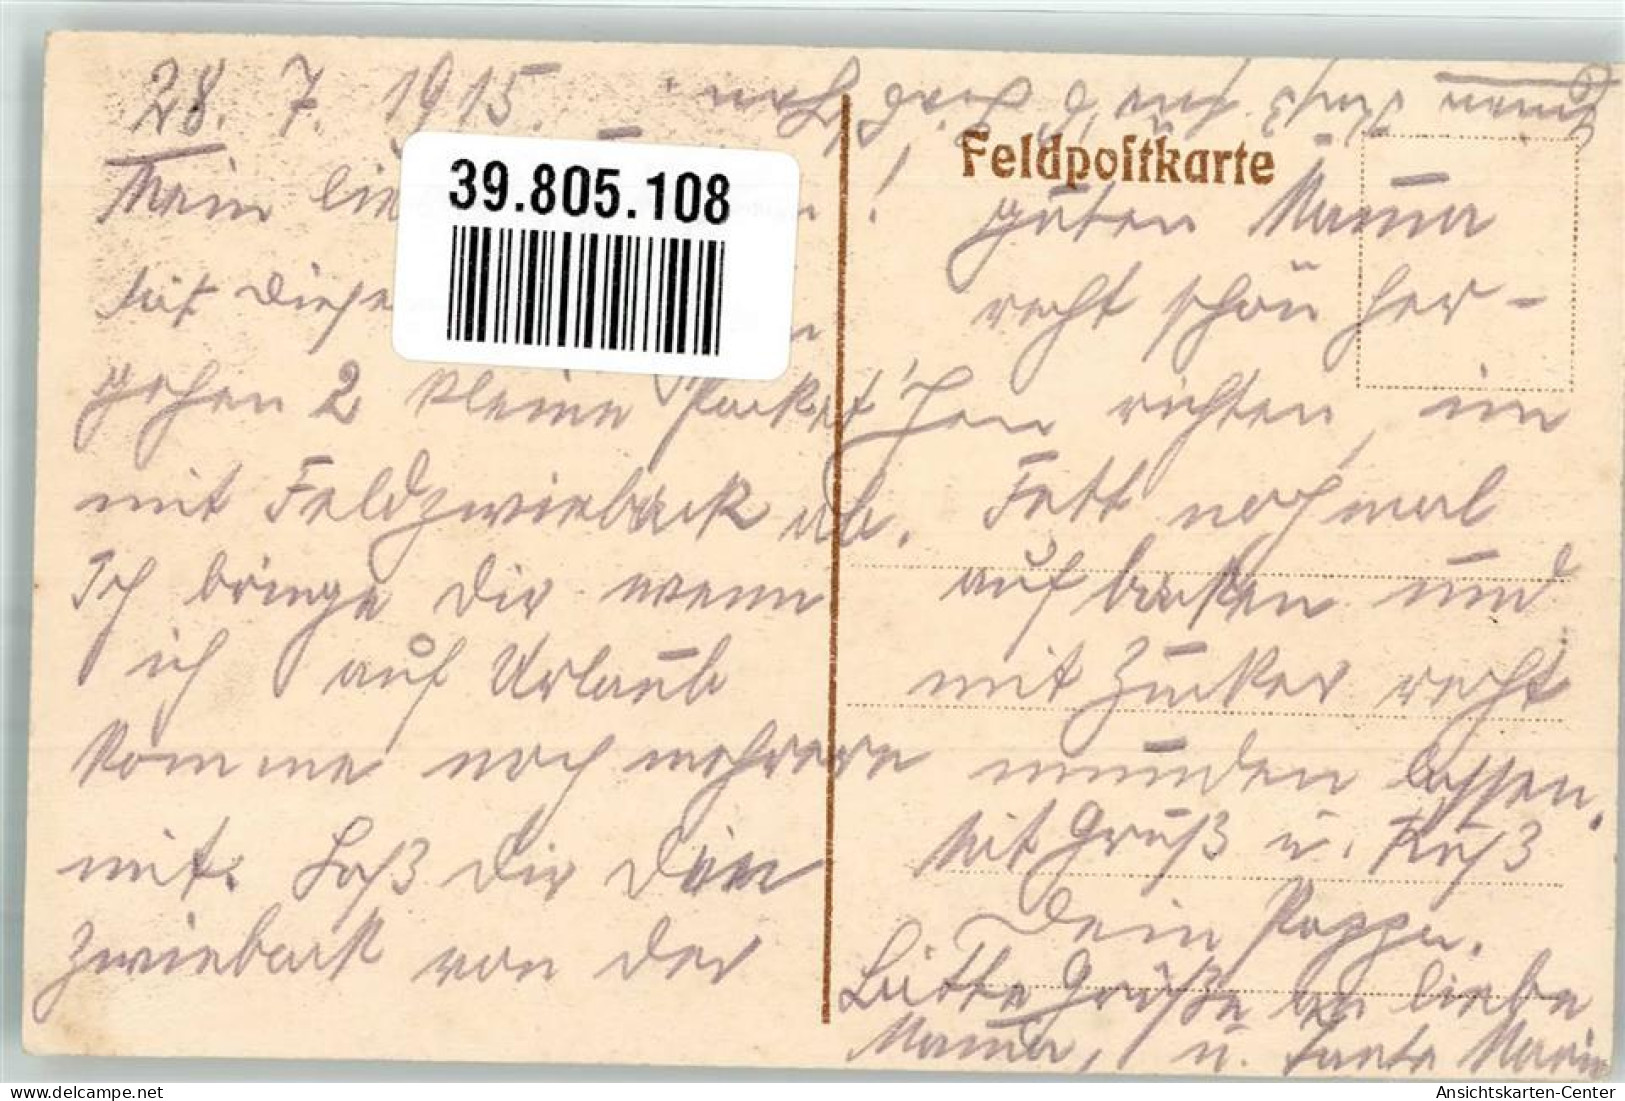 28. 7. 1915.
Mein lie
39.805.108
für diese
gehen 2 kleine Packet'chen
mit Feldzwieback ab.
Ich bringe dir wenn
ich auf Urlaub
komme noch mehrere
mit. Laß dir den
Zwieback von der
Feldpostkarte
guten Mama
recht schön her-
richten, im
Fett nochmal
aufbacken und
mit Zucker recht
munden lassen.
Mit Gruß u. Kuß
Dein Pappa.
Bitte Grüße an liebe
Mama, u. Tante Marie
Kuß für d.
Ansichtskarten-Center